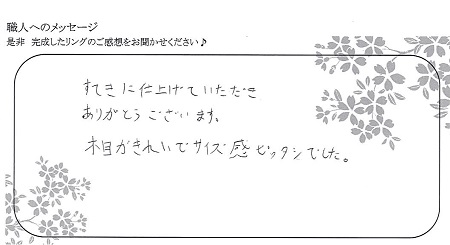 職人へのメッセージ
是非 完成したリングのご感想をお聞かせください♪
すてきに仕上げていただき
ありがとうございます。
木目がきれいでサイズ感ピッタシでした。